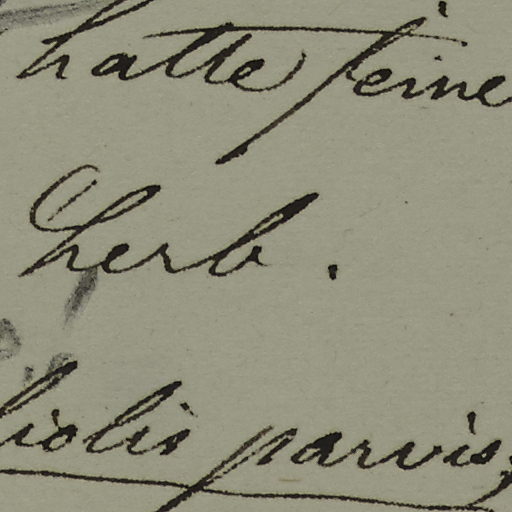 hatte seine
Herb.
liolis parvis,